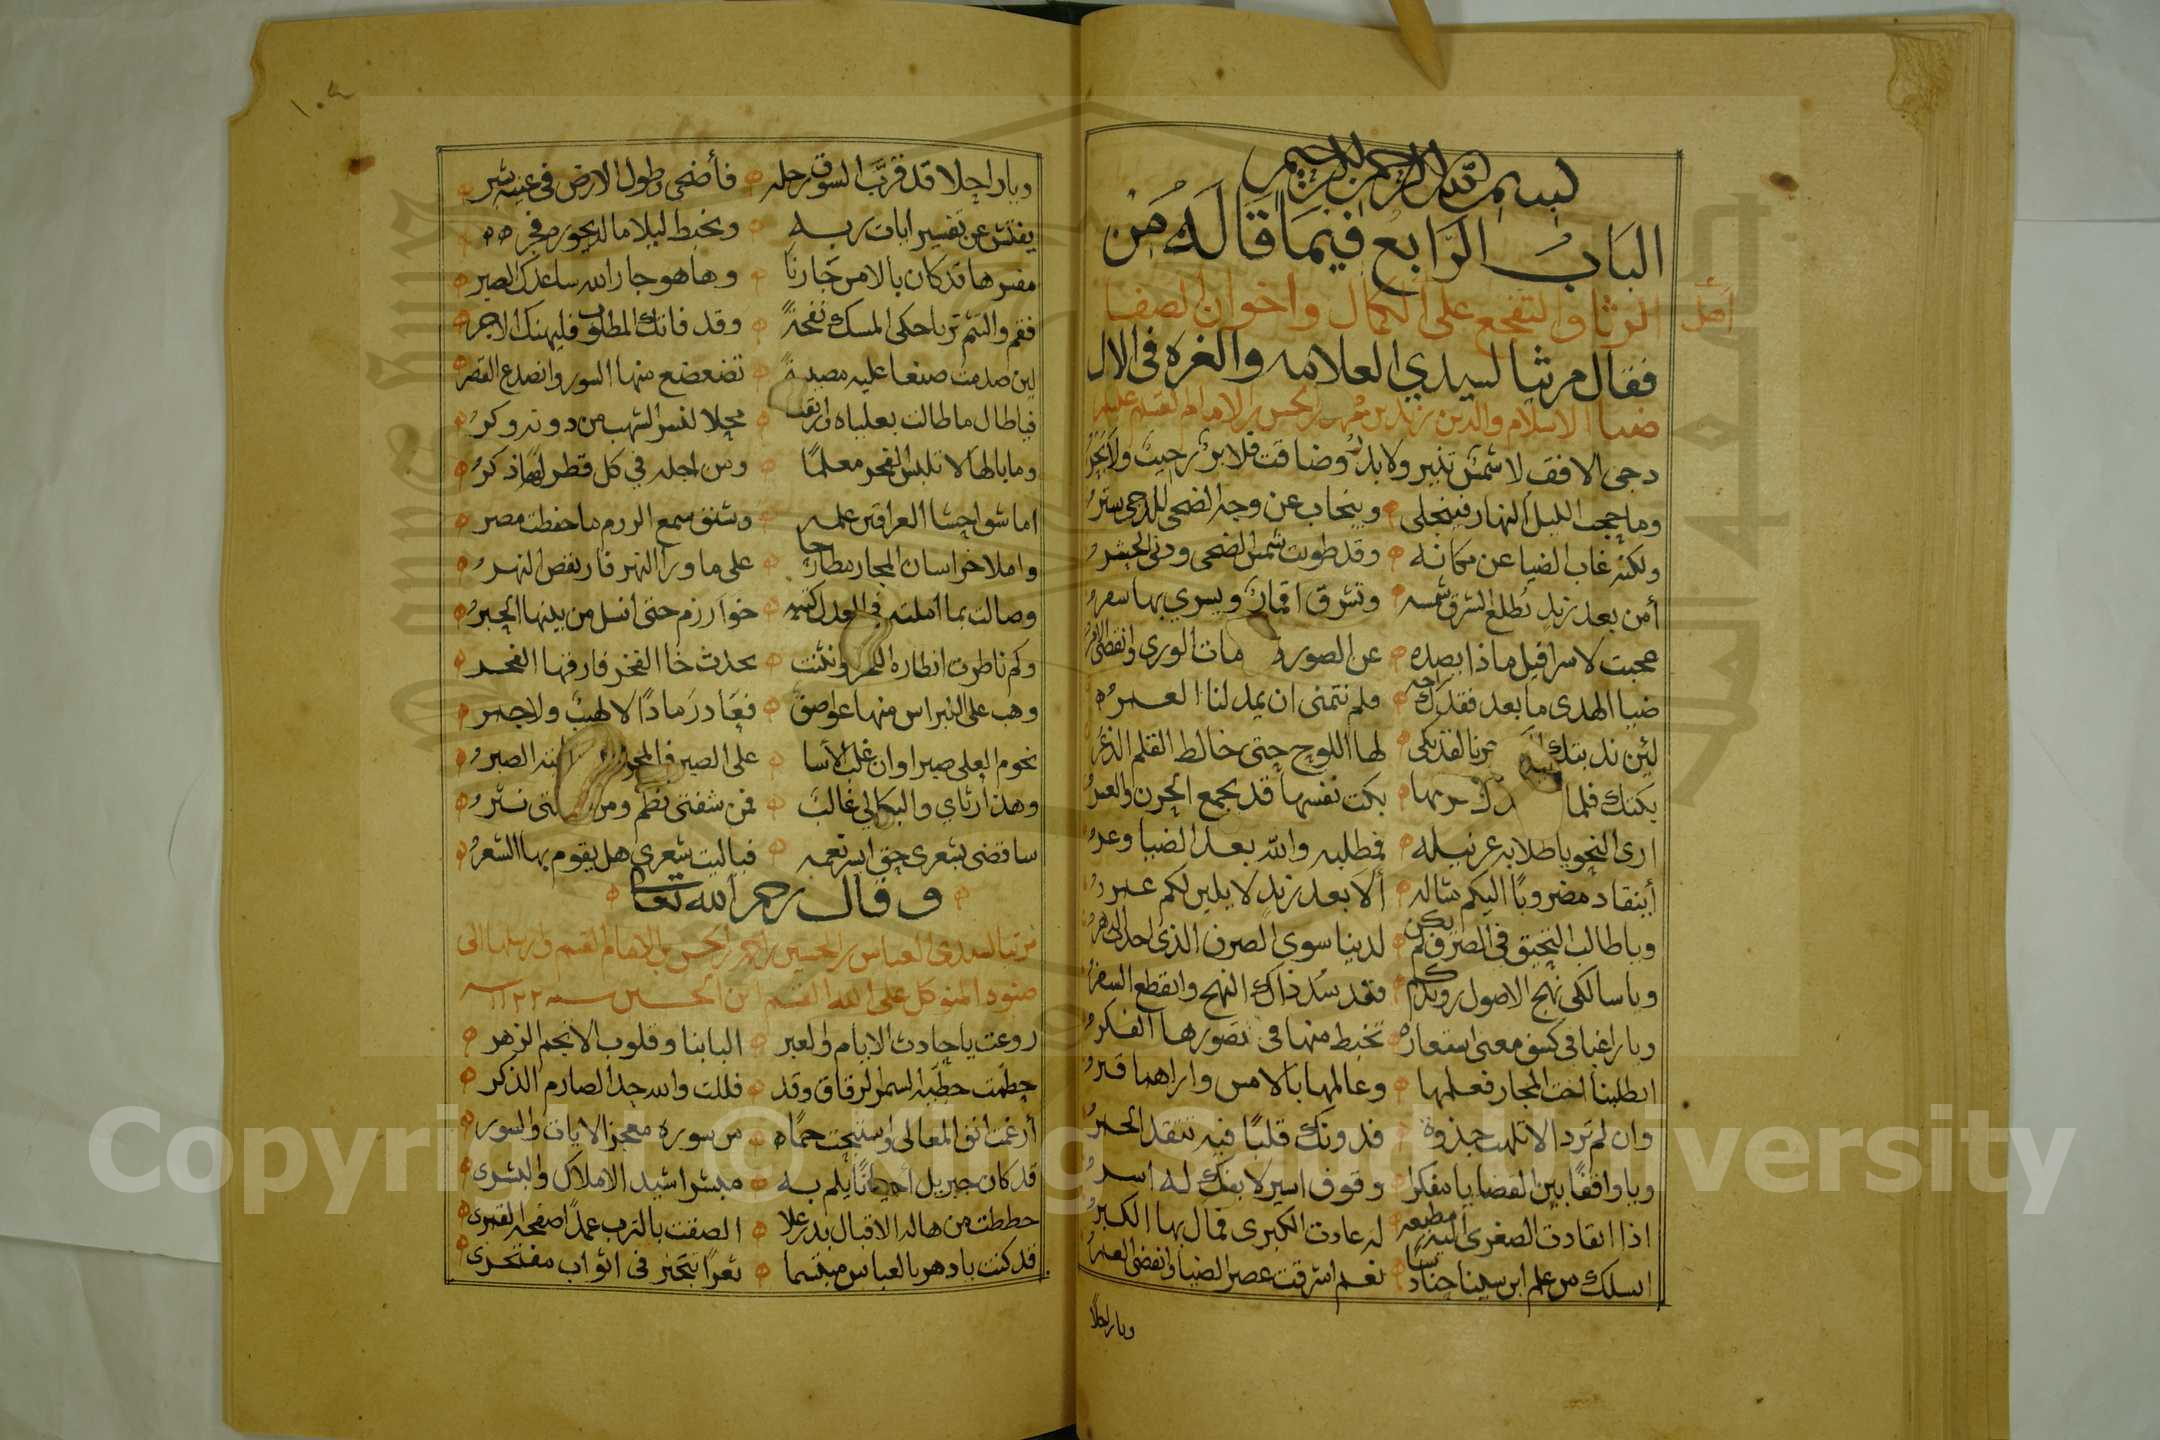 بسم الله الرحمن الرحيم
الباب الرابع فيما قاله من
الرثا والتفجع على الكمال واخوان الصفا
أهل
فقال مرثيا لسيدي العلامه والغره في الال
ضيا الاسلام والدين زيد بن محمد بن الحسن بن الامام القسم عليهم
دجى الافق لا شمس تنير ولا بدر وضاقت فلا بر رحيب ولا بحر
وما حجب الليل النهار فينجلي وينجاب عن وجه الضحى للدجى ستر
ولكنه غاب الضيا عن مكانه وقد طويت شمس الضحى ودنى الحشر
أمن بعد زيد تطلع الشرق شمسه وتشرق اقمار ويسري بها سفر
عجبت لاسرافيل ماذا يصده عن الصور مات الورى وانقضى الامر
ضيا الهدى ما بعد فقدك راحة فلم نتمنى ان يمد لنا العمر
لئن ندبتك لقد بكى لها اللوح حتى خالط القلم الذعر
بكتك فلما بكت نفسها قد يجمع الحزن والعبر
ارى النحو يا طلابه عز نيله فمطلبه والله بعد الضيا وعر
أينقاد مضروبا اليكم مثاله ألا بعد زيد لا يلين لكم عمرو
ويا طالب التحقيق في الصرف لم يكن لدينا سوى الصرف الذي احدث الدهر
ويا سالكي نهج الاصول رويدكم فقد سد ذاك النهج وانقطع السفر
ويا راغبا في كشف معنى استعارة تخبط منها في تصورها الفكر
اتطلبنا تحت المجاز فعلمها وعالمها بالامس واراهما قبر
وان لم ترد الا تلهب جذوة فدونك قلبا فيه تتقد الجمر
ويا واقفا بين القضايا مفكرا وقوف اسير لا يفك له اسر
اذا انقادت الصغرى اليه مطيعه له عادت الكبرى فمال بها الكبر
اتسلك من علم ابن سينا حنادسا نعم اشرقت عصر الضيا وانقضى العصر
ويا راحلا
ويا راحلا قد قرب السوق رحله فأضحى وطول الارض في عينه شبر
يفتش عن تفسير ايات ربه ويخبط ليلا ما لديجوره فجر
مفسرها قد كان بالامس جارنا وها هو جار الله ساعدك الصبر
فقم والتثم تربا حكى المسك نفحة وقد فاتك المطلوب فليهنك الاجر
لين صدمت صنعا عليه مصيبة تضعضع منها السور وانصدع القصر
فيا طال ما طالت بعلياه وارتقت محلا لنسر الشهب من دونه وكر
وما بالها لا تلبس الفخر معلما ومن اجله في كل قطر لها ذكر
اما شق احشا العراقين علمه وشنف سمع الروم ما حفظت مصر
واملا خراسان المجاز مطارحا على ما ورا النهر فارتفض النهر
وصالت بما املته في العدل كتبه خوارزم حتى انسل من بينها الحبر
وكم ناظرت انظاره الفخر وانثنت تحدث خا الفخر فارقها الفخر
وهب على النبراس منها عواصف فغادر رمادا لا لهيب ولا جمر
نجوم العلى صبرا وان غلب الأسا على الصبر الصبر
وهذا رثاي والبكا لي غالب فمن شفتي نظم ومن نثر
ساقضي بشعري حق ايسر نعمه فيا ليت شعري هل يقوم بها الشعر
وقال رحمه الله تعالى
مرثيا لسيدي العباس بن الحسين بن احمد بن الحسن بن الامام القسم وارسلها الى
صنوه المتوكل على الله القسم ابن الحسين سنه ١١٢٢
روعت يا حادث الايام والعبر البابنا وقلوب الانجم الزهر
حطمت خطية السمر الرقاق وقد فللت والله حد الصارم الذكر
أرغمت انف المعالي واستبحت حما من سوره معجز الايات والسور
قد كان جبريل أحيانا يلم به مبشرا شيد الاملاك والبشرى
حططت من هالة الاقبال بدر علا الصقت بالترب عمدا صفحة القمرى
قد كنت يا دهر بالعباس مبتسما ثغرا تبختر في اثواب مفتخرى
Copyright © King Saud University